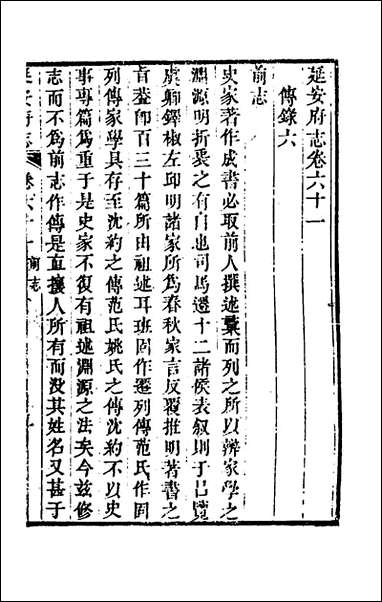 延安府志卷六十一
傳錄六
前志
史家著作成書必取前人撰述彙而列之所以辨家學之
淵源明折衷之有自也司馬遷十二諸侯表叙則于呂覽
虞卿鐸椒左邱明諸家所為春秋家言反覆推明著書之
㫖葢即百三十篇所由祖述耳班固作遷列傳范氏作固
列傳家學具存至沈約之傳范氏姚氏之傳沈約不以史
事專篇為重于是史家不復有祖述淵源之法矣今兹修
志而不為前志作傳是直攘人所有而没其姓名又甚于
延安府志 卷六十一 前志